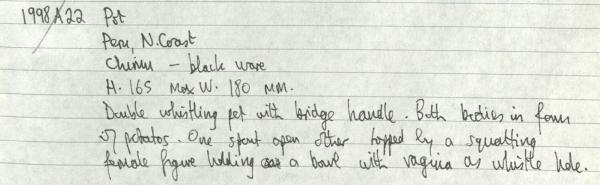 1998A22 Pot
Peru, N. Coast
Chimu - black ware
H. 165 Max W. 180 MM.
Double whistling pot with bridge handle. Both bodies in form
of potatos. One spout open other topped by a squatting
female figure holding a bowl with vagina as whistle hole.